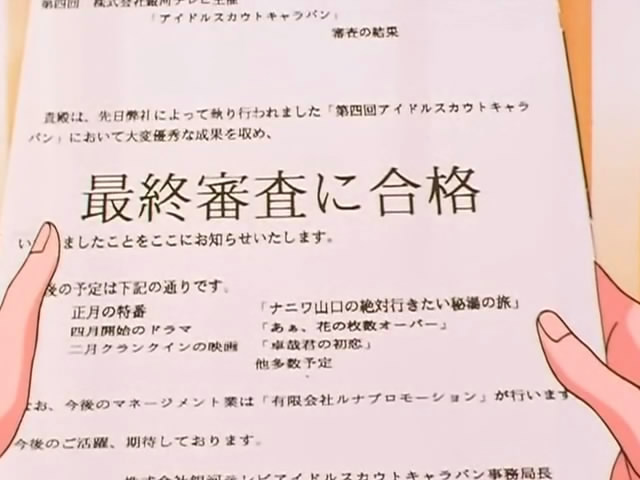 第四回　株式会社銀河テレビ主催
「アイドルスカウトキャラバン」
審査の結果
貴殿は、先日弊社によって執り行われました「第四回アイドルスカウトキャラ
バン」において大変優秀な成果を収め、
最終審査に合格
い ましたことをここにお知らせいたします。
後の予定は下記の通りです。
正月の特番　「ナニワ山口の絶対行きたい秘湯の旅」
四月開始のドラマ　「あぁ、花の枚数オーバー」
二月クランクインの映画　「卓哉君の初恋」
他多数予定
なお、今後のマネージメント業は「有限会社ルナプロモーション」が行います
今後のご活躍、期待しております。
株式会社銀河テレビアイドルスカウトキャラバン事務局長